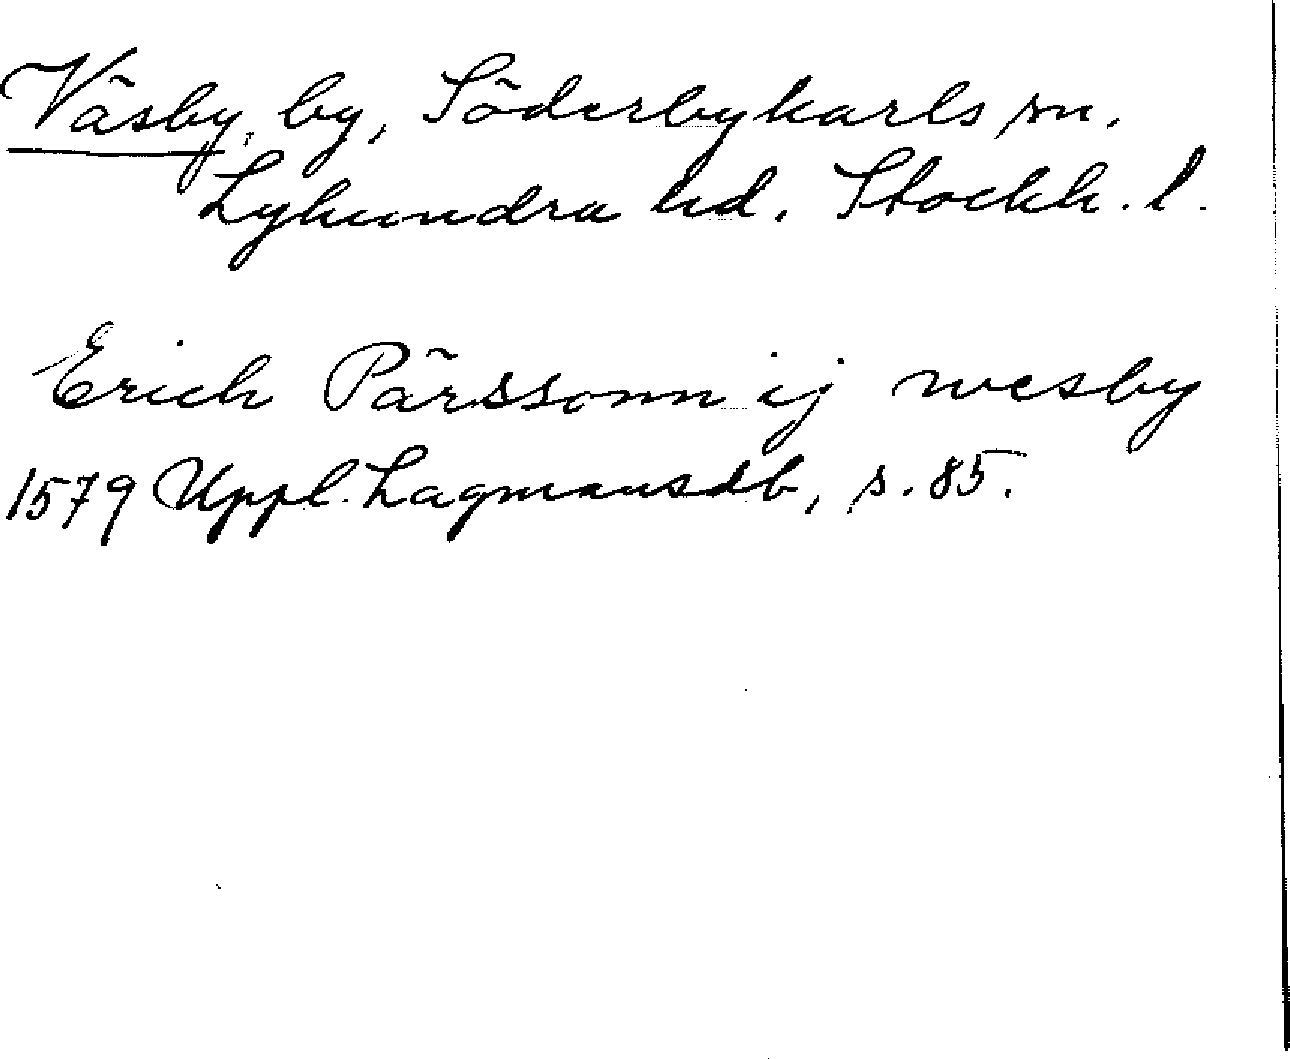 Väsby, by, Söderbykarls sn.
Lyhundra hd. Stockh. l.
Erich Pärssonn ij wesby
1579 Uppl. Lagmansdb, s. 85.